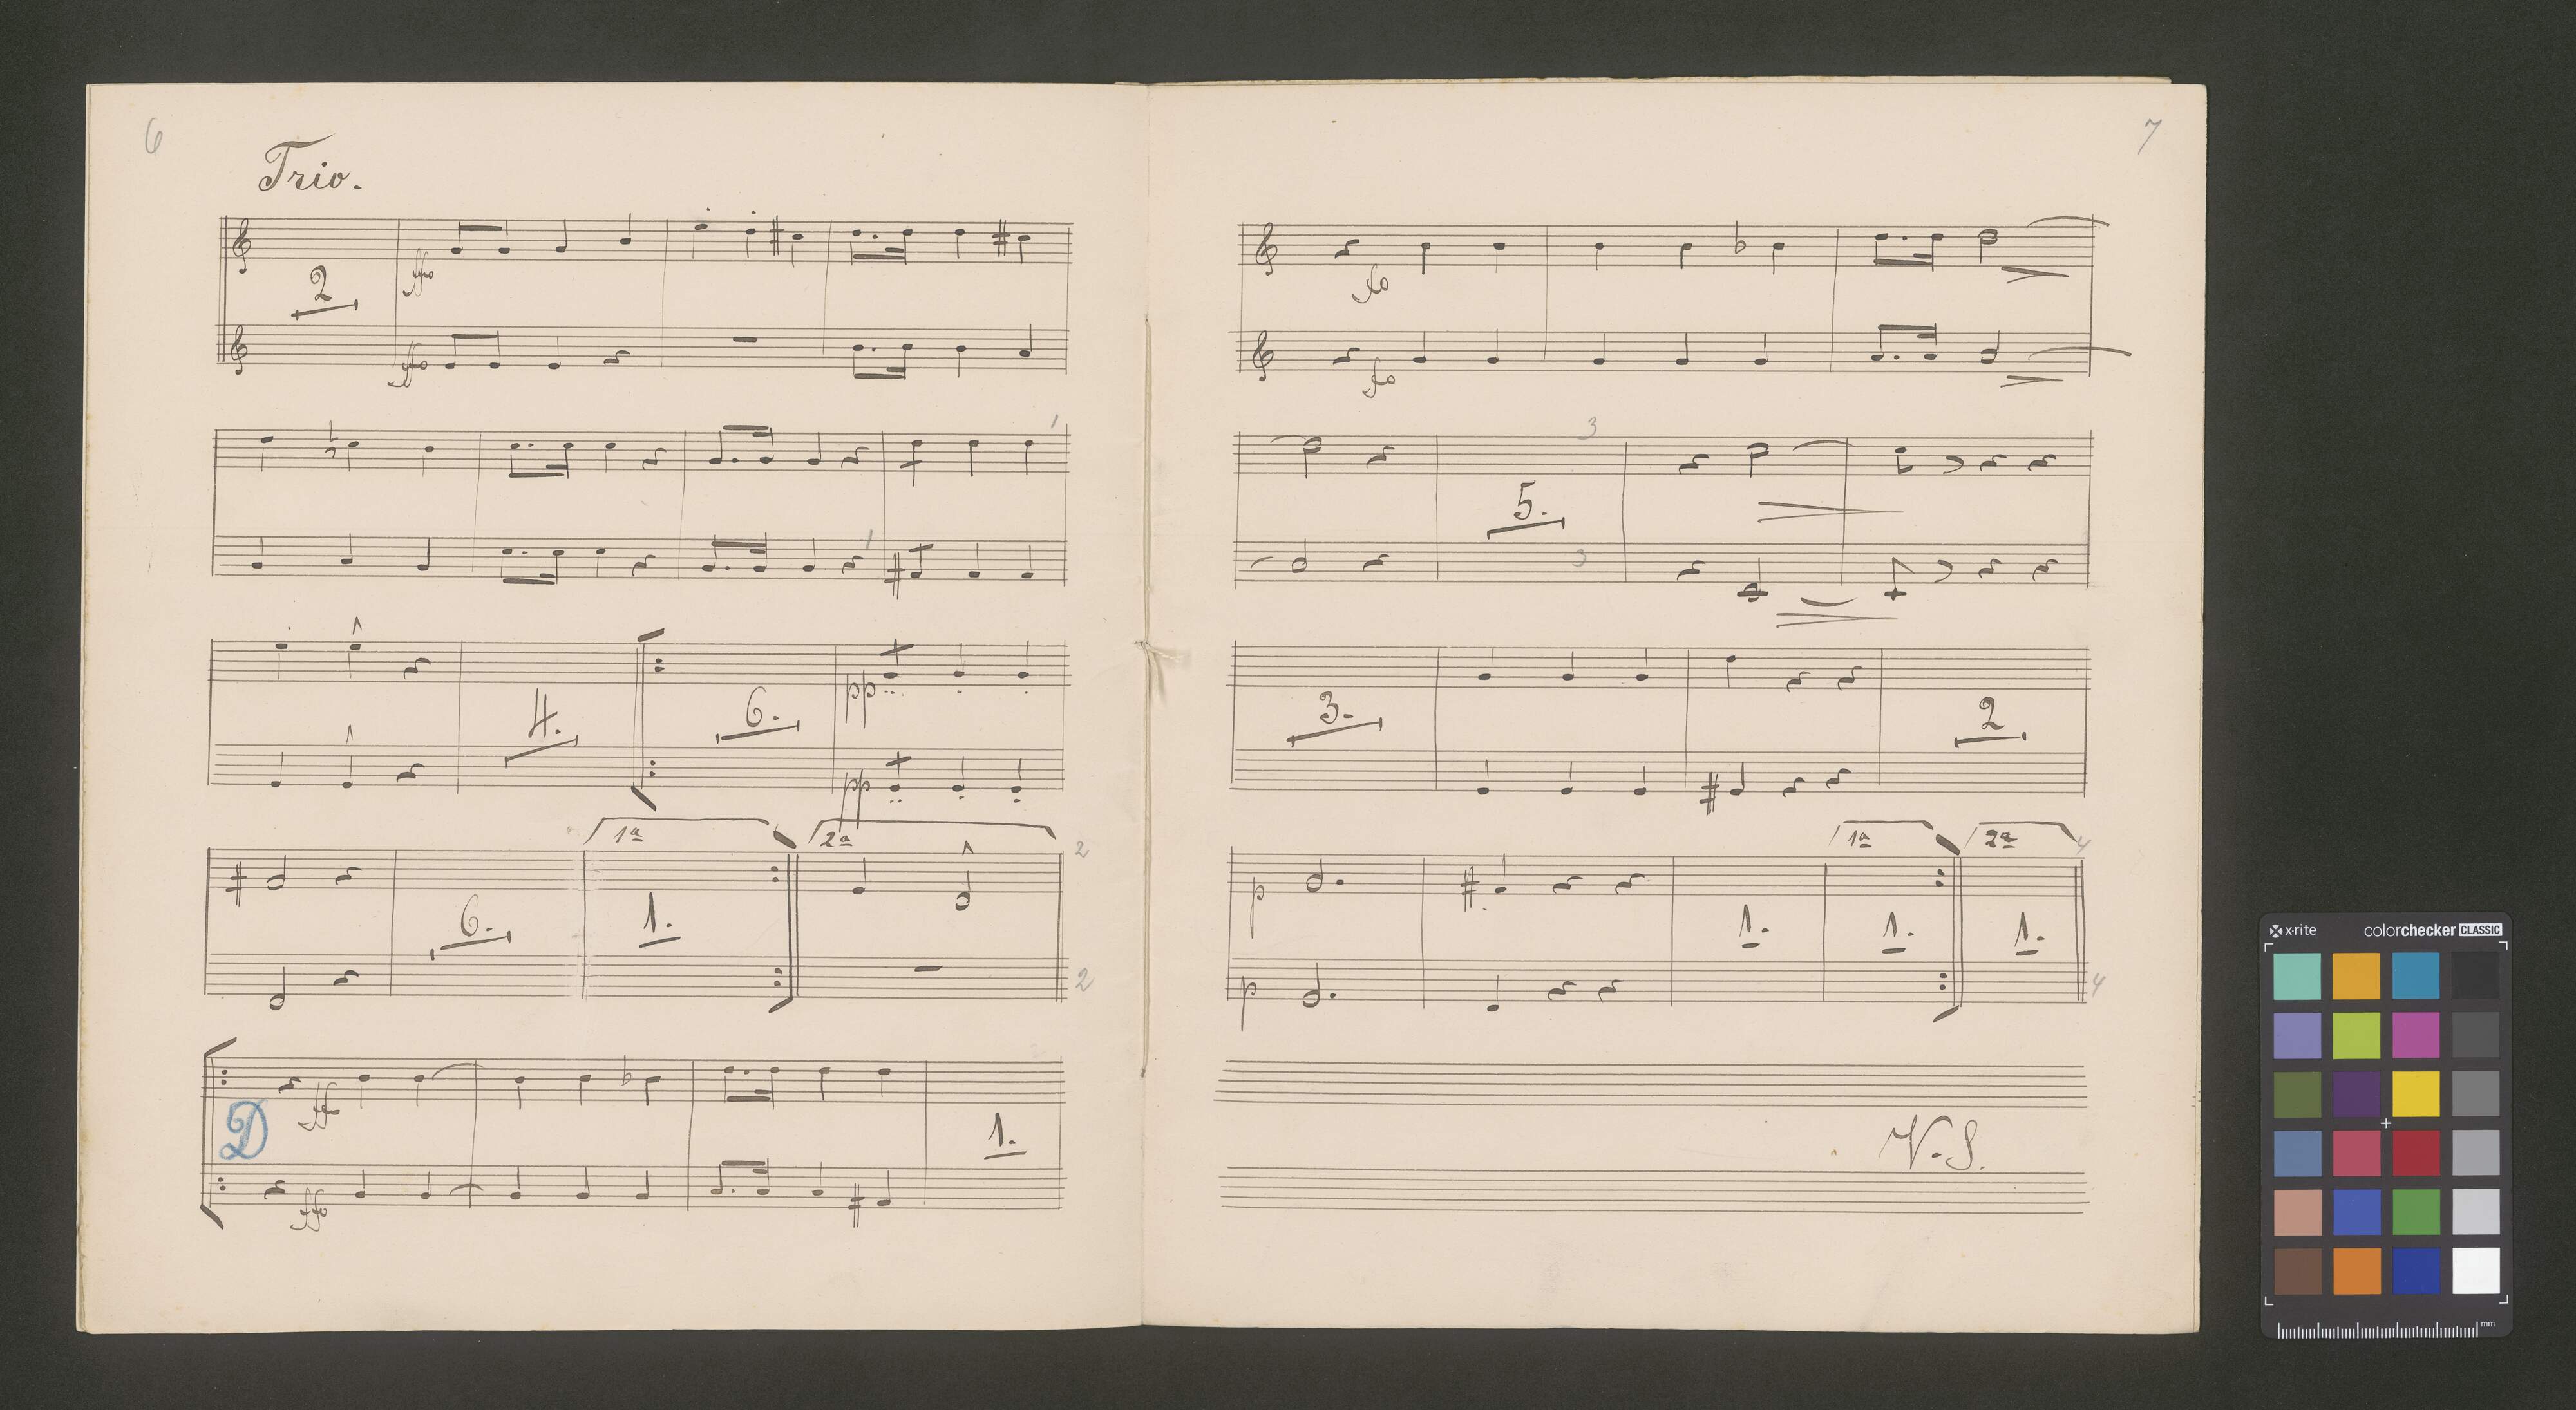 6
Trio.
2
ffo
ffo
1
1
4.
6.
pp
pp
6.
1a
1.
2a
2
2
D
ffo
ffo
1.
7
fo
fo
3
5.
3
3.
2
p
p
1.
1a
1.
2a
1.
4
4
V.S.
x-rite
colorchecker CLASSIC
mm